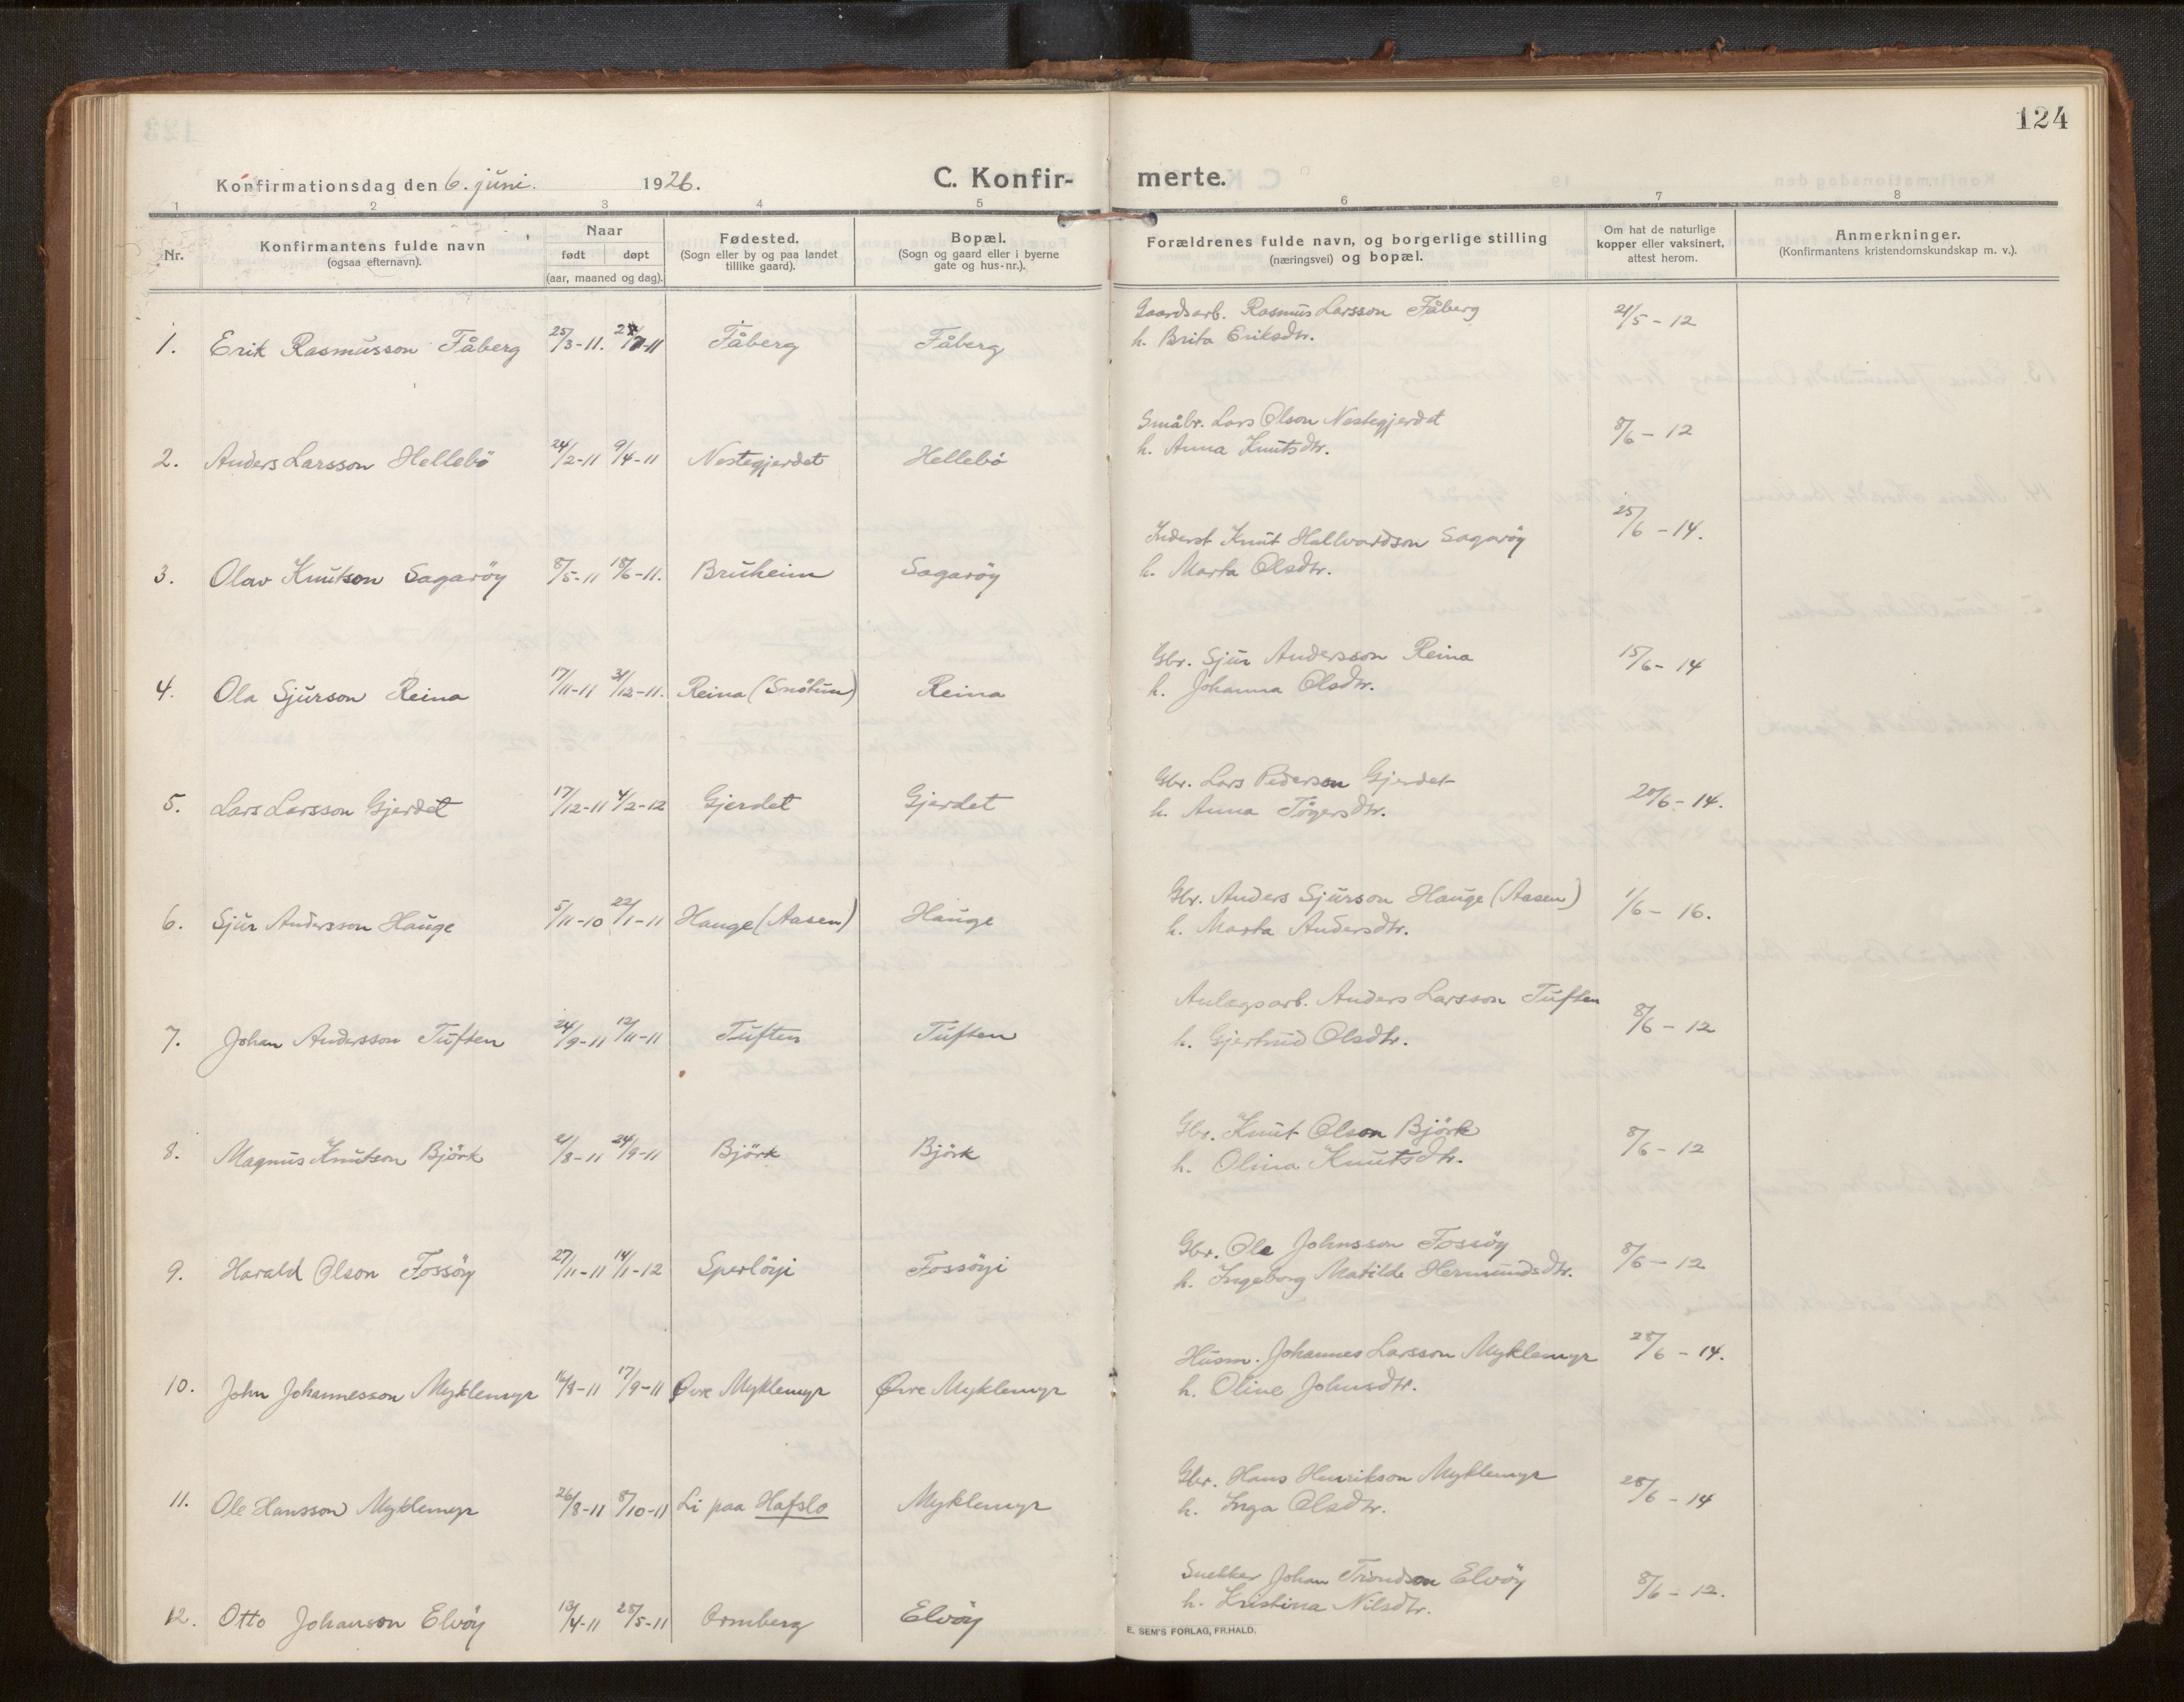 124
Konfirmationsdag den 6. juni. 1926.
C. Konfir-
merte.
1 2 3 4 5 6 7 8
Nr.
Konfirmantens fulde navn
(ogsaa efternavn).
Naar
født døpt
(aar, maaned og dag).
Fødested.
(Sogn eller by og paa landet
tillike gaard).
Bopæl.
(Sogn og gaard eller i byerne
gate og hus-nr.).
Forældrenes fulde navn, og borgerlige stilling
(næringsvei) og bopæl.
Om hat de naturlige
kopper eller vaksinert,
attest herom.
Anmerkninger.
(Konfirmantens kristendomskundskap m. v.).
Gaardsarb. Rasmus Larsson Fåberg 21/5 - 12
1. Erik Rasmusson Fåberg 25/3-11. Fåberg Fåberg h. Brita Eriksdtr.
Småbr. Lars Olson Nestegjerdet 8/6 - 12
2. Anders Larsson Hellebö 24/2-11 9/4-11 Nestegjerdet Hellebö h. Anna Knutsdtr.
Inderst Knut Hallvardson Sagaröy 25/6 - 14.
3. Olav Knutson Sagaröy 8/5-11 18/6-11. Bruheim Sagaröy h. Marta Olsdtr.
Gbr. Sjur Andersson Reina 15/6 - 14
4. Ola Sjurson Reina 17/11-11 31/12-11. Reina (Snötun) Reina h. Johanna Olsdtr.
Gbr. Lars Pederson Gjerdet 20/6 - 14.
5. Lars Larsson Gjerdet 17/12-11 4/2-12 Gjerdet Gjerdet h. Anna Tögersdtr.
Gbr. Anders Sjurson Hauge (Aasen) 1/6 - 16.
6. Sjur Andersson Hauge 5/11-10 22/1-11 Hauge (Aasen) Hauge h. Marta Andersdtr.
Anlegsarb. Anders Larsson Tuften 8/6 - 12
7. Johan Andersson Tuften 24/9-11 12/11-11 Tuften Tuften h. Gjertrud Olsdtr.
Gbr. Knut Olson Björk 8/6 - 12
8. Magnus Knutson Björk 21/8-11 24/9-11 Björk Björk h. Olina Knutsdtr.
Gbr. Ole Johnsson Fossöy 8/6 - 12
9. Harald Olson Fossöy 27/11-11 14/1-12 Sperlöyi Fossöyi h. Ingeborg Matilde Hermundsdtr.
Husm. Johannes Larsson Myklemyr 28/6 - 14.
10. John Johannesson Myklemyr 16/8-11 17/9-11 Øvre Myklemyr Øvre Myklemyr h. Oline Johnsdtr.
Gbr. Hans Henrikson Myklemyr 28/6 - 14
11. Ole Hansson Myklemyr 26/8-11 8/10-11 Li paa Hafslo Myklemyr h. Inga Olsdtr.
Snekker Johan Trondson Elvöy 8/6 - 12.
12. Otto Johanson Elvöy 13/4-11 28/5-11 Ormberg Elvöy h. Kristina Nilsdtr.
E. SEM'S FORLAG, FR.HALD.